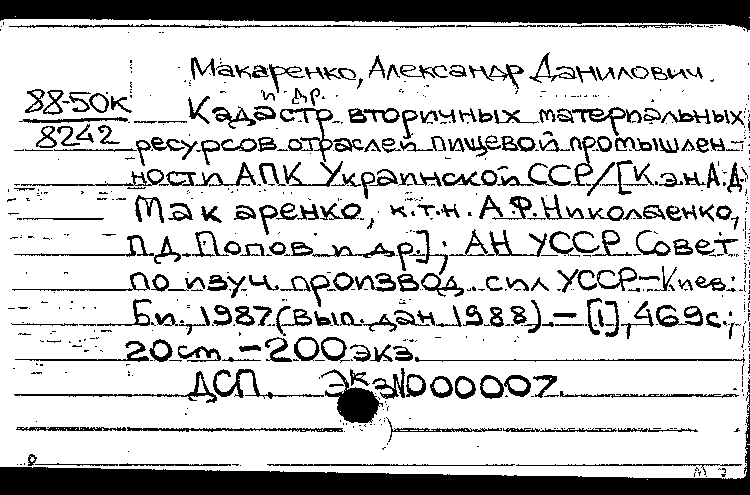 Макаренко, Александр Данилович
и др.
88-50к
8242
Кадастр вторичных материальных
ресурсов отраслей пищевой промышлен-
ности АПК Украинской ССР/[К.э.н. А.Д.
Макаренко, к.т.н. А.Ф. Николаенко,
П.Д. Попов и др.]; АН УССР. Совет
по изуч. производ. сил УССР.-Киев:
Б.и., 1987 (вып. дан. 1988).-[1], 469с.;
20см.-200экз.
ДСП. Экз N000007.